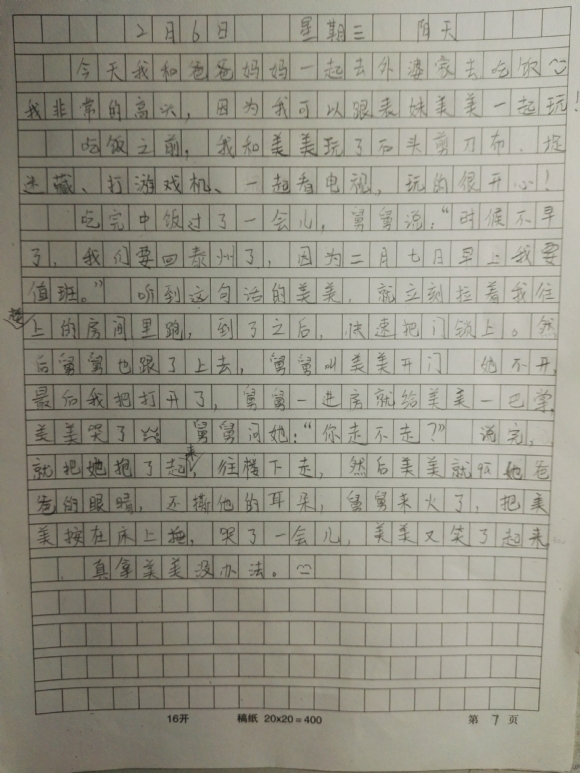 2月6日 星期三 阴天
今天我和爸爸妈妈一起去外婆家去吃饭
我非常的高兴,因为我可以跟表妹美美一起玩!
吃饭之前,我和美美玩了石头剪刀布、捉
迷藏、打游戏机、一起看电视,玩的很开心!
吃完中饭过了一会儿,舅舅说:“时候不早
了,我们要回泰州了,因为二月七日早上我要
值班。”听到这句话的美美,就立刻拉着我往
楼上的房间里跑,到了之后,快速把门锁上。然
后舅舅也跟了上去,舅舅叫美美开门 她不开,
最后我把打开了,舅舅一进房就给美美一巴掌,
美美哭了 舅舅问她:“你走不走?”说完,
就把她抱了起来,往楼下走,然后美美就她爸
爸的眼睛,还撕他的耳朵,舅舅来火了,把美
美按在床上,哭了一会儿,美美又笑了起来
真拿美美没办法。
16开 稿纸 20×20=400 第 7 页